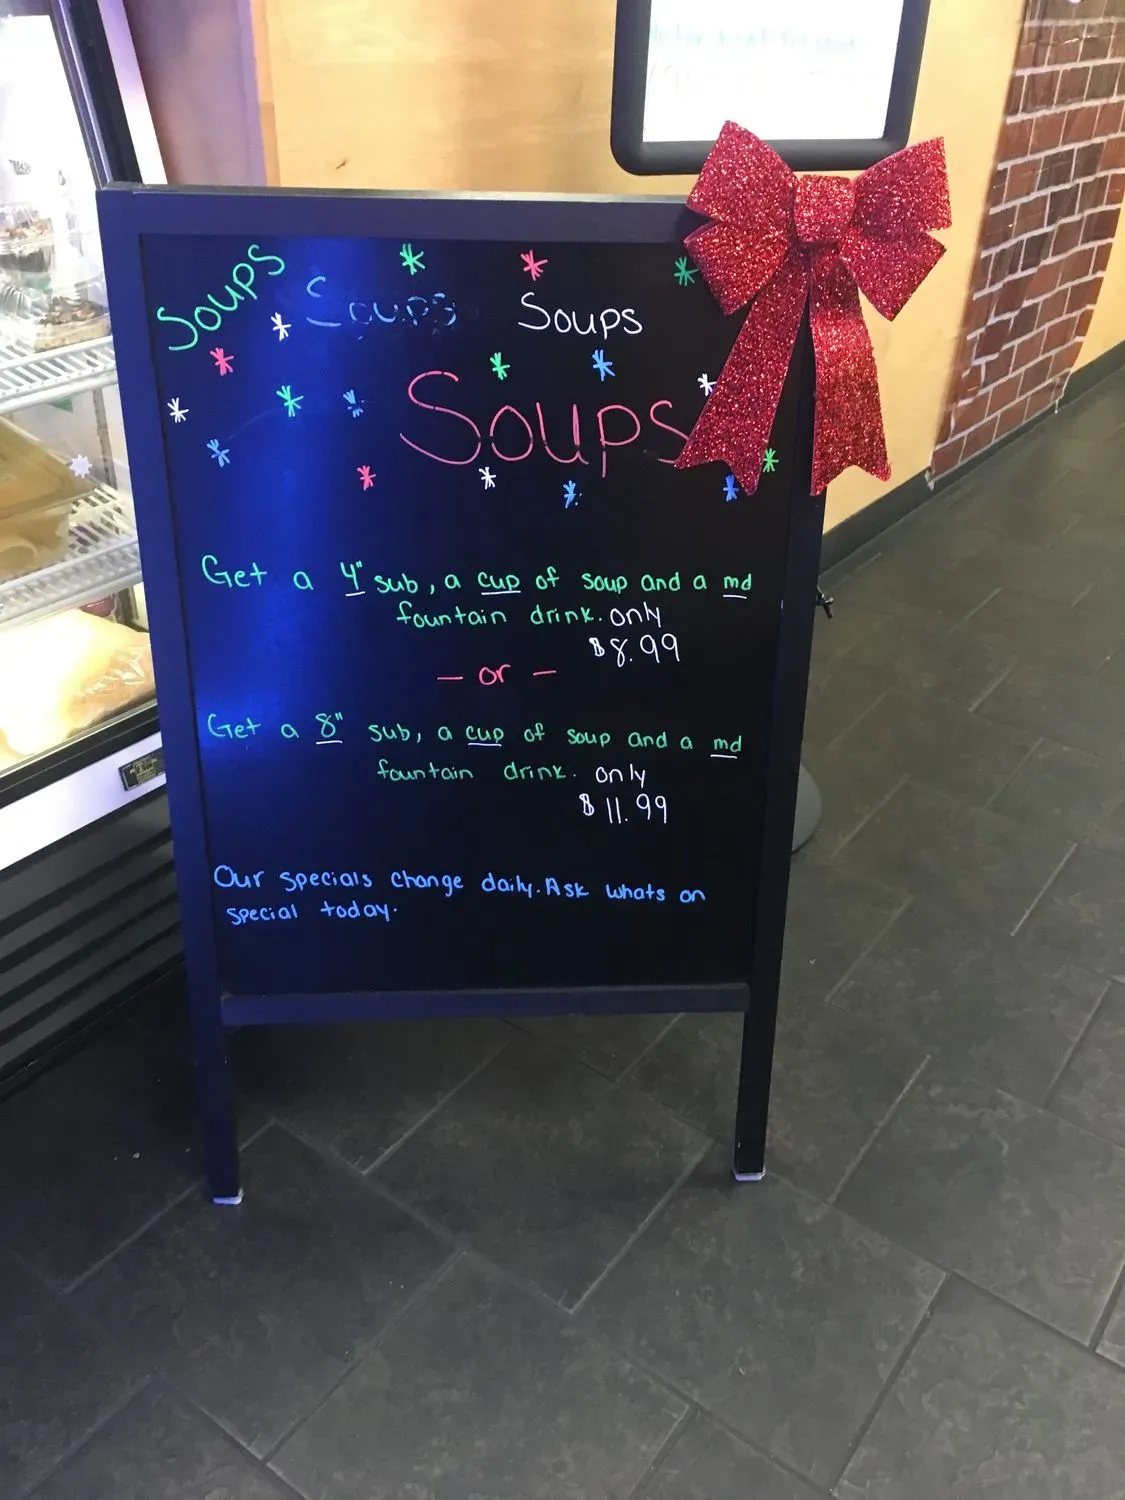 Soups
Soups
Soups
Soups
Get a 4" sub, a cup of soup and a md
fountain drink. only
$8.99
- or -
Get a 8" sub, a cup of soup and a md
fountain drink. only
$11.99
Our specials change daily. Ask whats on
special today.